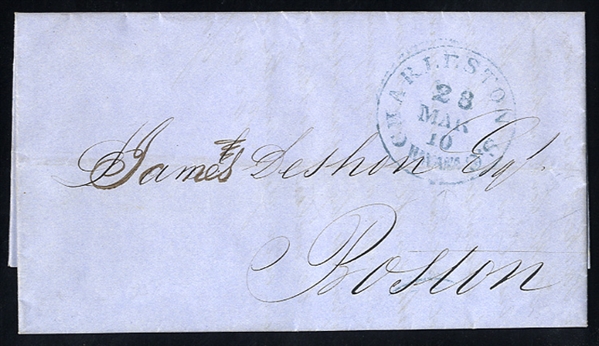 CHARLESTON S.C.
28
MAR
10
James Deshon Esqr
Boston